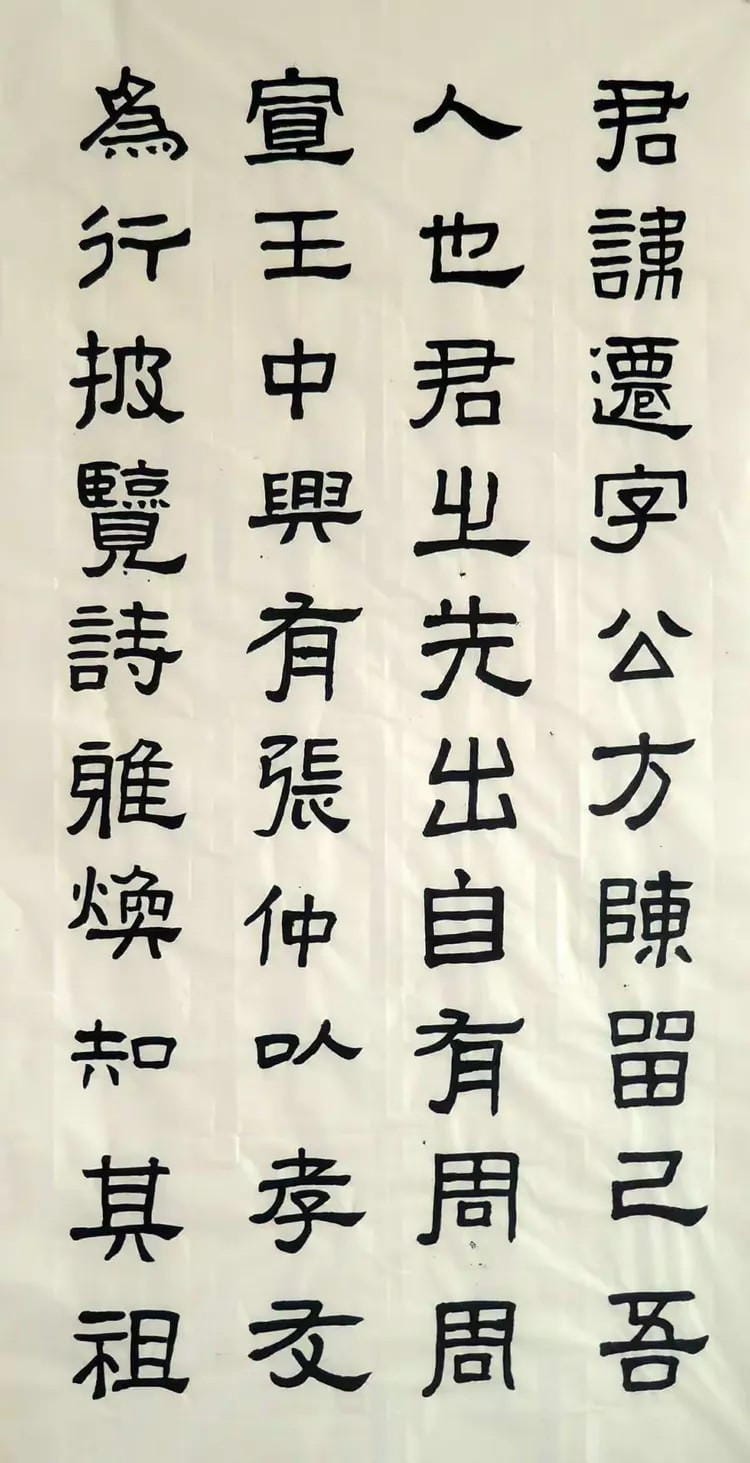 君諱遷字公方陳留己吾
人也君之先出自有周周
宣王中興有張仲以孝友
為行披覽詩雅煥知其祖